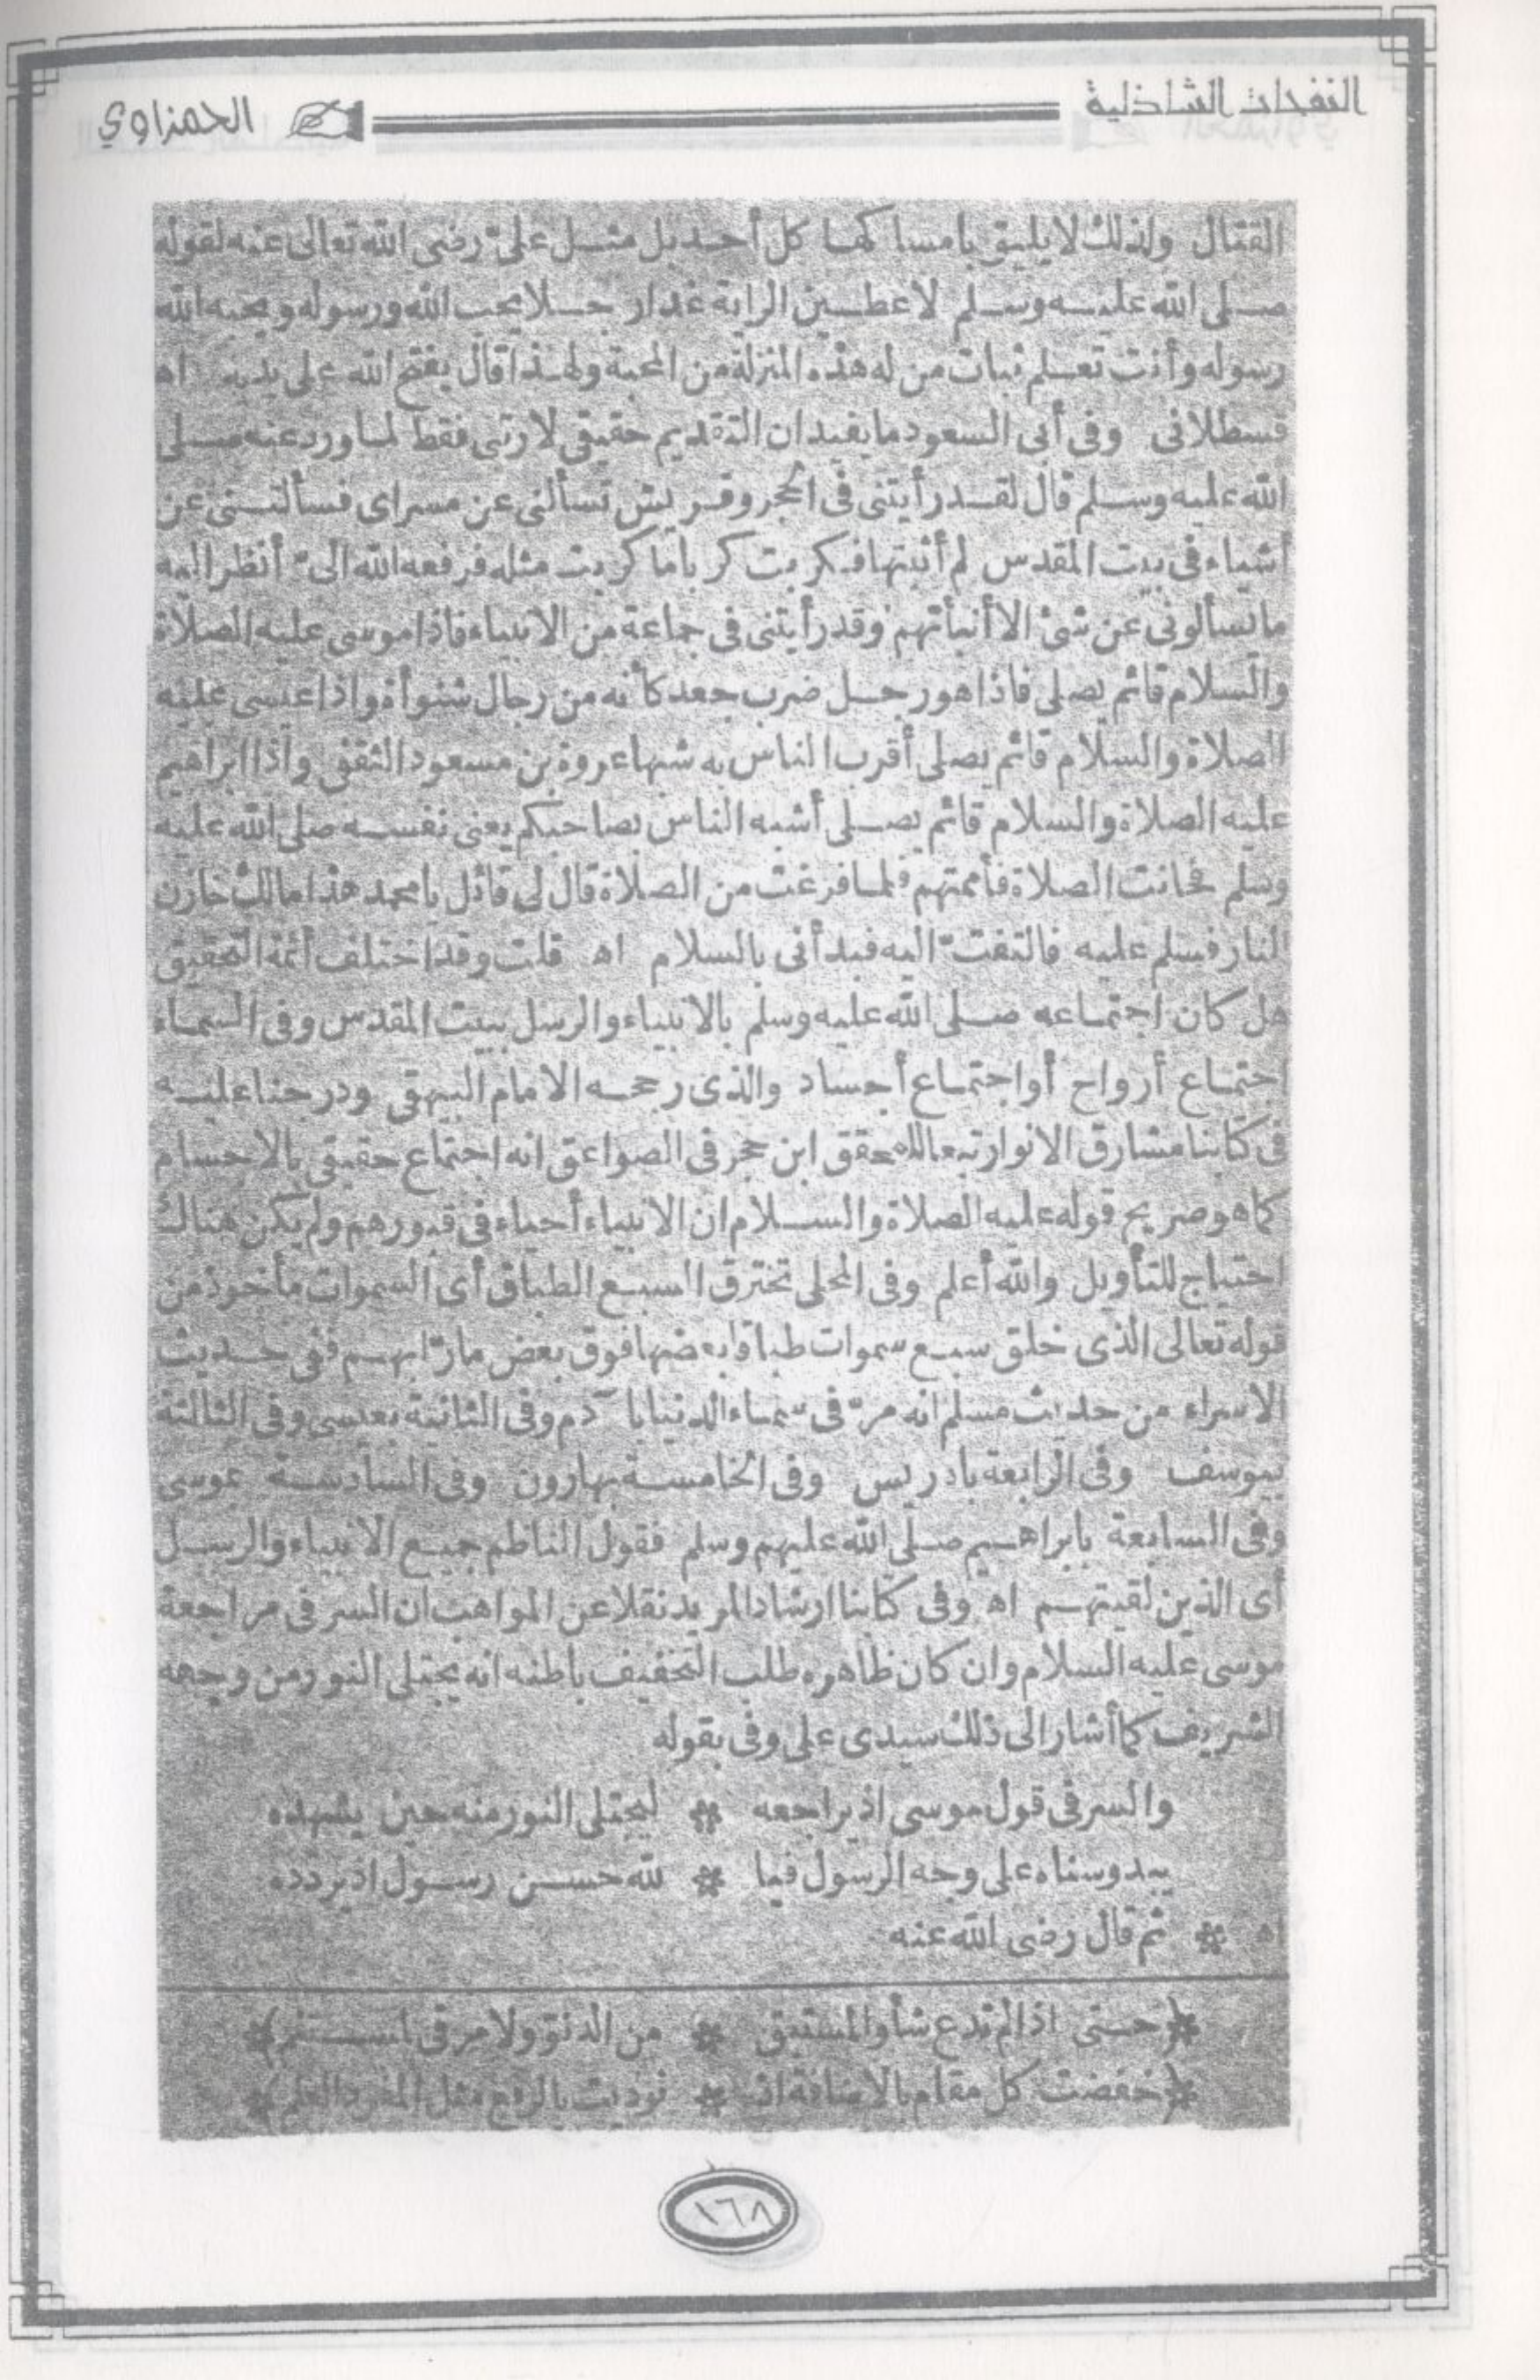 النفحات الشاذلية
الحمزاوي
القتال ولذلك لا يليق بامساكها كل أحد بل مثل علي رضى الله تعالى عنه لقوله
صلى الله عليه وسلم لاعطين الراية غدا رجلا يحب الله ورسوله ويحبه الله
رسوله وأنت تعلم ثبات من له هذه المنزلة من المحبة ولهذا قال يفتح الله على يديه اه
قسطلانى وفى أبى السعود ما يفيد ان التقديم حقيقى لا رتبى فقط لما ورد عنه صلى
الله عليه وسلم قال لقد رأيتنى فى الحجر وقريش تسألنى عن مسراى فسألتنى عن
أشياء فى بيت المقدس لم أثبتها فكربت كربا ما كربت مثله فرفعه الله الىّ أنظر اليه
ما تسألونى عن شئ الا أنبأتهم وقد رأيتنى فى جماعة من الانبياء فاذا موسى عليه الصلاة
والسلام قائم يصلى فاذا هو رجل ضرب جعد كأنه من رجال شنوأة واذا عيسى عليه
الصلاة والسلام قائم يصلى أقرب الناس به شبها عروة بن مسعود الثقفى واذا ابراهيم
عليه الصلاة والسلام قائم يصلى أشبه الناس بصاحبكم يعنى نفسه صلى الله عليه
وسلم فحانت الصلاة فأممتهم فلما فرغت من الصلاة قال لى قائل يا محمد هذا مالك خازن
النار فسلم عليه فالتفتّ اليه فبدأنى بالسلام اه قلت وقد اختلف أئمة التحقيق
هل كان اجتماعه صلى الله عليه وسلم بالانبياء والرسل ببيت المقدس وفى السماء
اجتماع أرواح أو اجتماع أجساد والذى رجحه الامام البيهقى ودرجنا عليه
فى كتابنا مشارق الانوار تبعا للمحقق ابن حجر فى الصواعق انه اجتماع حقيقى بالاجسام
كما هو صريح قوله عليه الصلاة والسلام ان الانبياء أحياء فى قبورهم ولم يكن هناك
احتياج للتأويل والله أعلم وفى المحلى تخترق السبع الطباق أى السموات مأخوذ من
قوله تعالى الذى خلق سبع سموات طباقا بعضها فوق بعض مارّا بهم ففى حديث
الاسراء من حديث مسلم انه مرّ فى سماء الدنيا بآدم وفى الثانية بعيسى وفى الثالثة
بيوسف وفى الرابعة بادريس وفى الخامسة بهارون وفى السادسة بموسى
وفى السابعة بابراهيم صلى الله عليهم وسلم فقول الناظم جميع الانبياء والرسل
أى الذين لقيتهم اه وفى كتابنا ارشاد المريد نقلا عن المواهب ان السر فى مراجعة
موسى عليه السلام وان كان ظاهره طلب التخفيف باطنه انه يجتلى النور من وجهه
الشريف كما أشار الى ذلك سيدى على وفى بقوله
والسر فى قول موسى اذ يراجعه * ليجتلى النور منه حين يشهده
يبدو سناه على وجه الرسول فيا * لله حسن رسول اذ يردده
اه * ثم قال رضى الله عنه
﴿حتى اذا لم تدع شأوا لمستبق * من الدنوّ ولا مرقى لمستنم﴾
﴿خفضت كل مقام بالاضافة اذ * نوديت بالرفع مثل المفرد العلم﴾
١٦٨